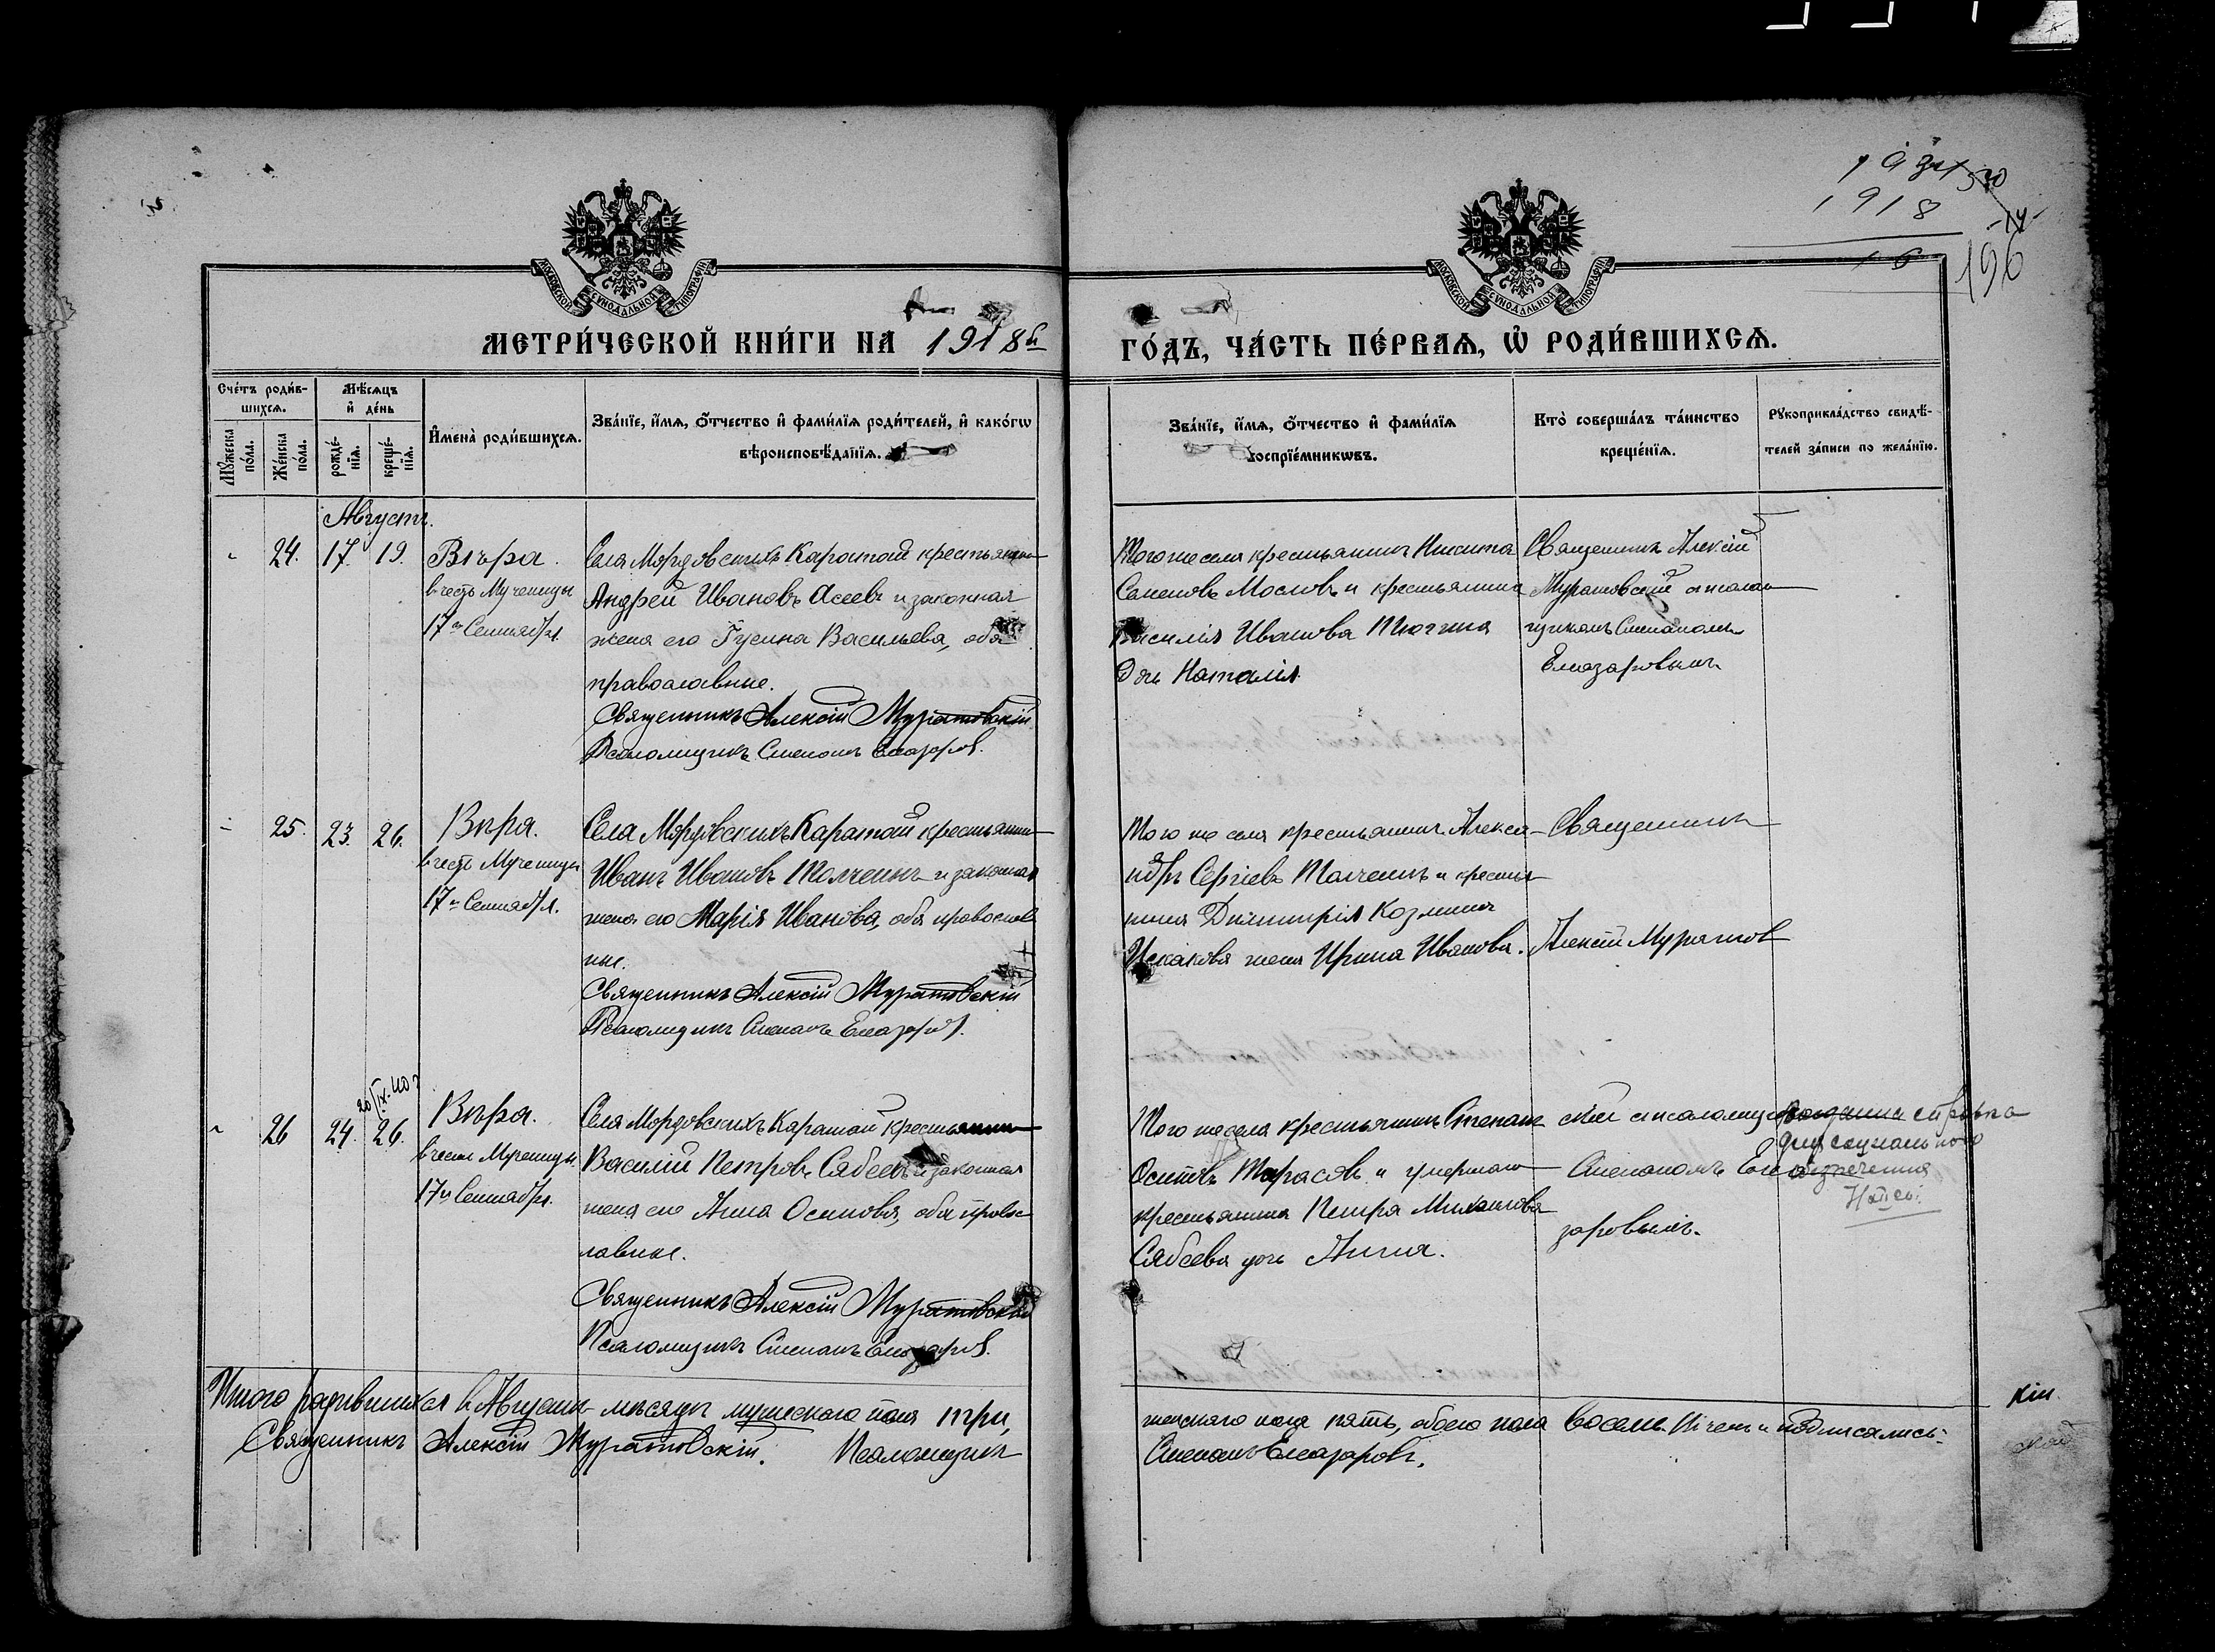 1918
196
МОСКОВСКОЙ СѴНОДАЛЬНОЙ ТИПОГРАФІИ
МОСКОВСКОЙ СѴНОДАЛЬНОЙ ТИПОГРАФІИ
МЕТРИ́ЧЕСКОЙ КНИ́ГИ НА 1918й
ГО́ДЪ, ЧА́СТЬ ПЕ́РВАѦ, Ѡ҆ РОДИ́ВШИХСѦ.
Сче́тъ роди́в-
шихсѧ.
Мꙋ́жеска по́ла.
Же́нска по́ла.
Мѣ́сѧцъ
и҆ де́нь
рожде́-
нїѧ.
креще́-
нїѧ.
И҆мена̀ роди́вшихсѧ.
Зва́нїе, и҆́мѧ, ѻ҆́тчество и҆ фами́лїѧ роди́телей, и҆ како́гѡ
вѣроисповѣ́данїѧ.
Зва́нїе, и҆́мѧ, ѻ҆́тчество и҆ фами́лїѧ
воспрїе́мникѡвъ.
Кто̀ соверша́лъ та́инство
креще́нїѧ.
Рꙋкоприкла́дство свидѣ́-
телей за́писи по жела́нїю.
Августъ.
24. 17. 19. Вѣра.
въ честь Мученицы
17го Сентября.
Села Мордовскихъ Каратай крестьянинъ
Андрей Ивановъ Асеевъ и законная
жена его Васильева, оба
православные.
Священникъ Алексій Муратовскій
Псаломщикъ Степанъ Елеазаровъ.
Того же села крестьянинъ Никита
Семеновъ Масловъ и крестьянина
Василія Иванова
дочь Наталія
Священникъ Алексій
Муратовскій с псалом
щикомъ Степаномъ
Елеазаровымъ
25. 23. 26. Вѣра.
въ честь Мученицы
17го Сентября.
Села Мордовскихъ Каратай крестьянинъ
Иванъ Ивановъ Толченъ и законная
жена его Марія Иванова, оба православ
ные.
Священникъ Алексій Муратовскій
Псаломщикъ Степанъ Елеазаровъ.
Того же села крестьянинъ Алекса-
ндръ Сергіевъ Толченъ и крестья
нина Димитрія Козмина
Искакова жена Ирина Иванова.
Священникъ
Алексій Муратов
26 24. 26. Вѣра.
20/IX-40г
въ честь Мученицы
17го Сентября.
Села Мордовскихъ Каратай крестьянинъ
Василій Петровъ Сябеевъ и законная
жена его Анна Осипова, оба правос
лавные.
Священникъ Алексій Муратовскій
Псаломщикъ Степанъ Елеазаровъ.
Того же села крестьянинъ Степанъ
Осиповъ Тарасовъ и умершаго
крестьянина Петра Михайлова
Сябеева дочь Анна.
скій с псаломщикомъ
Степаномъ Елеа
заровымъ.
выдана справка
для социального
обеспечения
Итого родившихся въ Августѣ мѣсяцѣ мужескаго пола три,
женскаго пола пять, обоего пола восемь. въ чемъ и подписались:
Священникъ Алексій Муратовскій. Псаломщикъ
Степанъ Елеазаровъ.